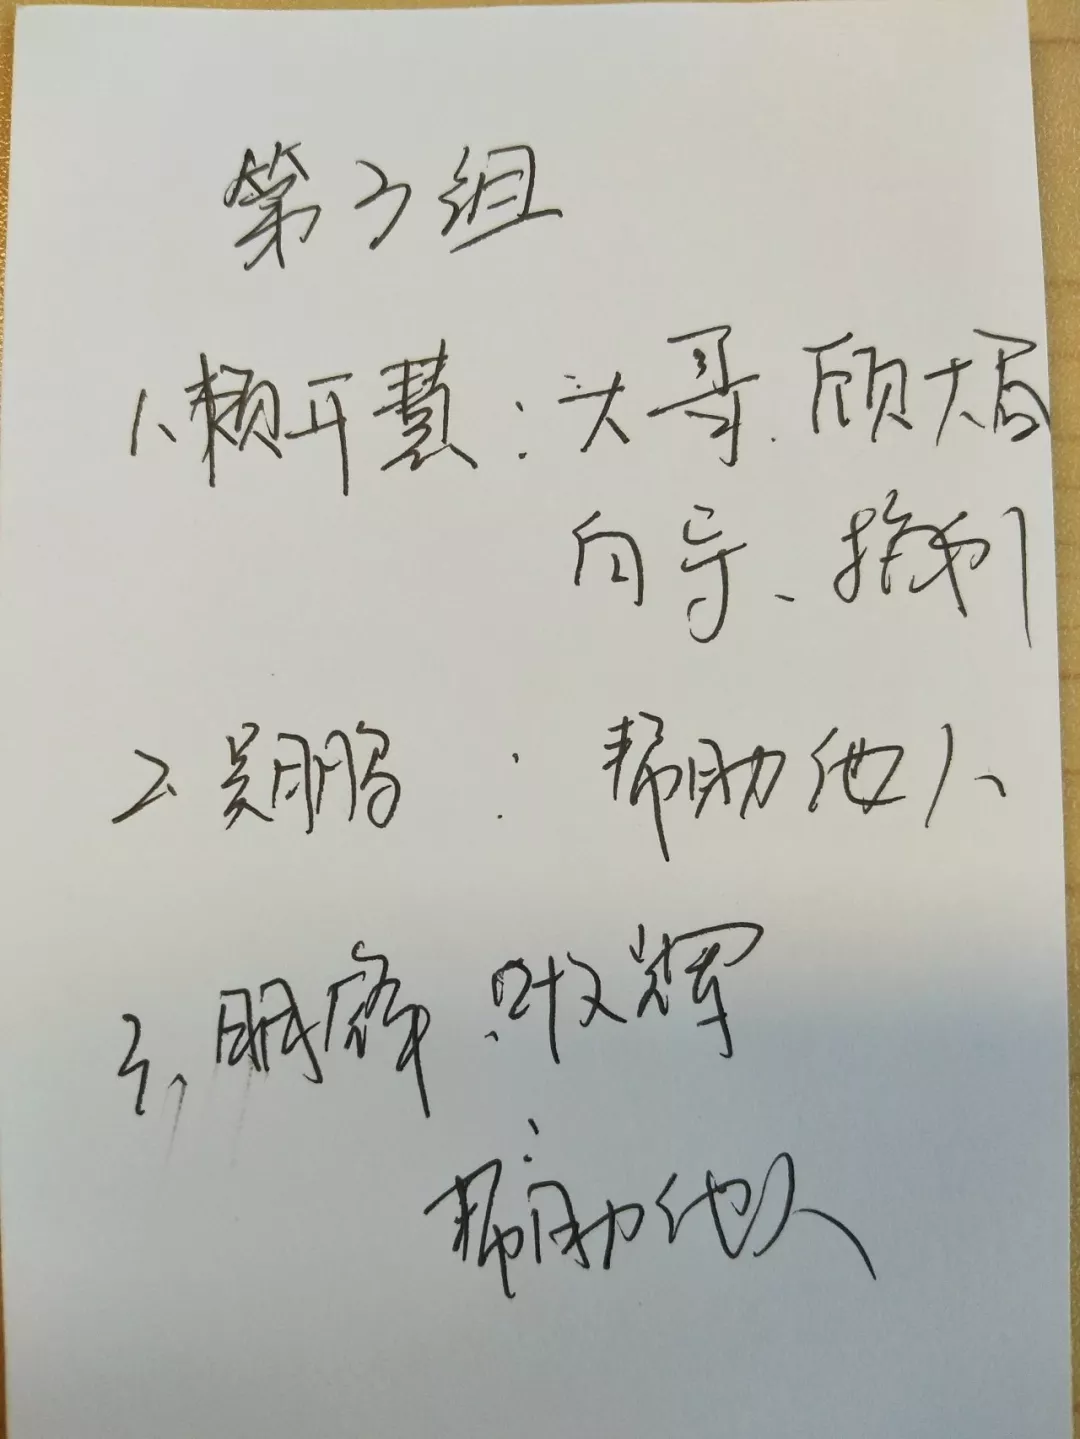 第3组
1、赖开慧：大哥、顾大局
向导、
2、吴鹏：帮助他人、
3、叶文辉
：帮助他人